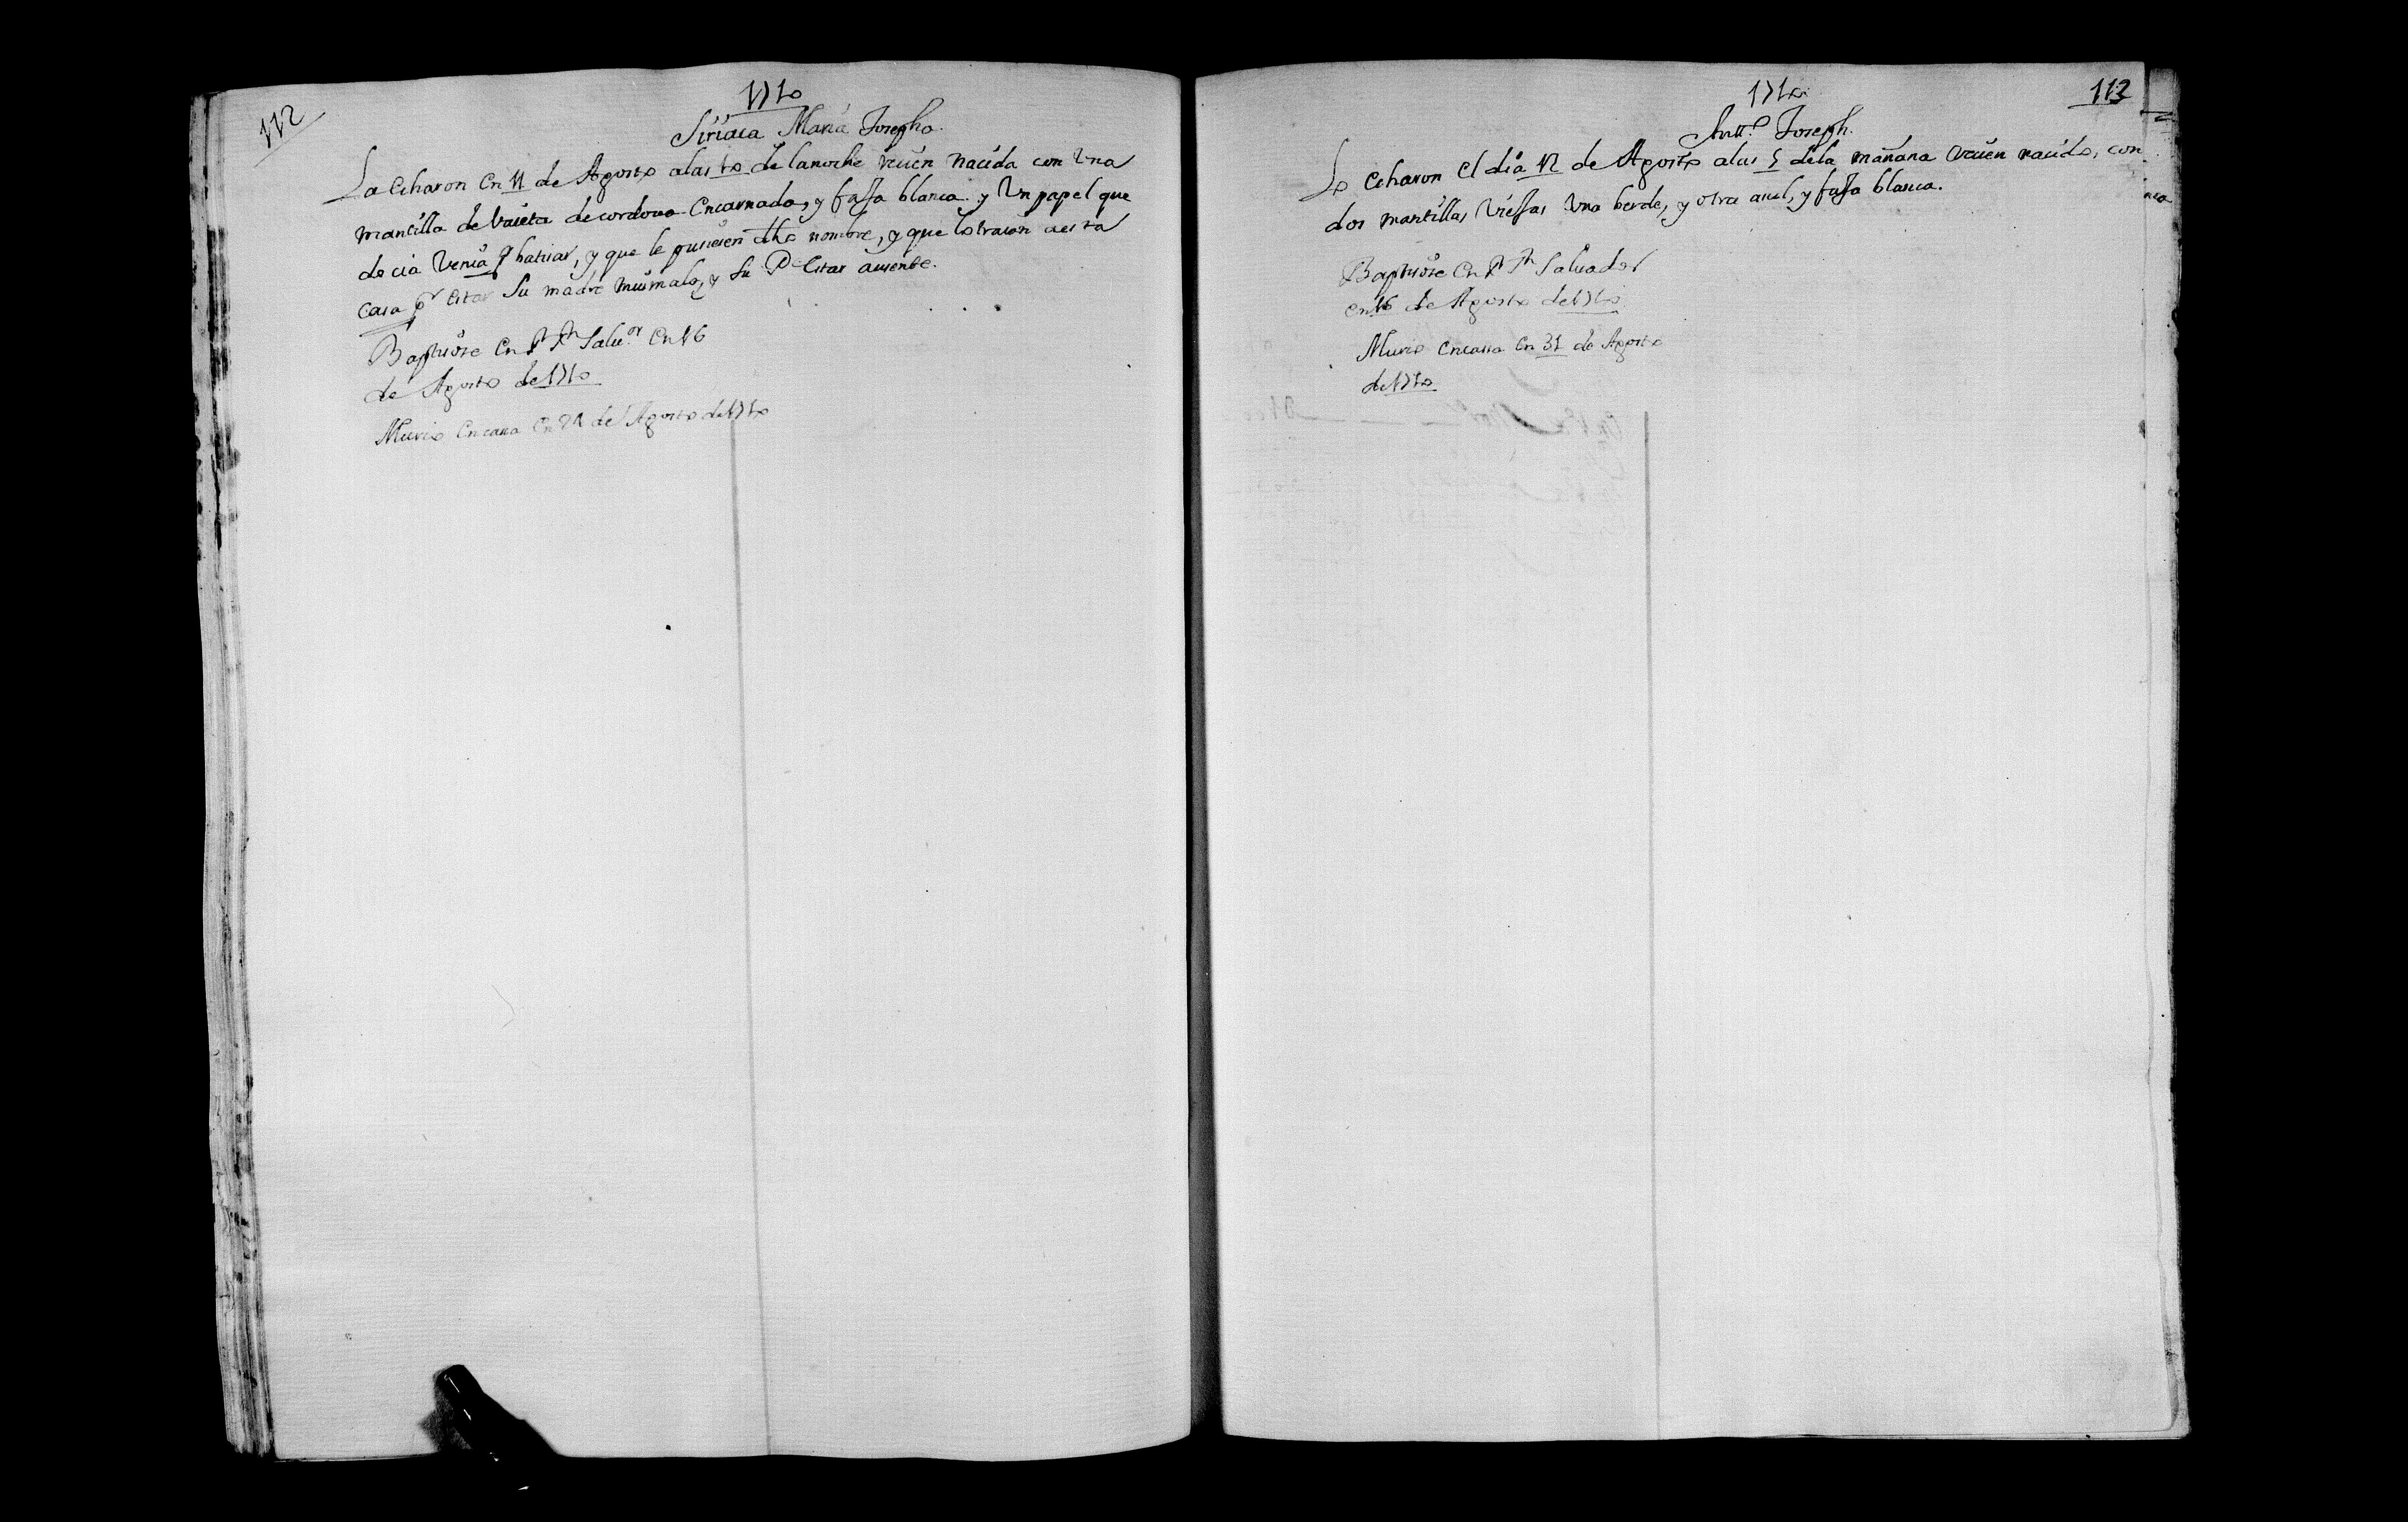 112
1710
Siriaca Maria Josepha.
La Echaron En 11 de Agosto alas 10 de lanoche recien Nacida con Vna
mantilla de Vaieta decordova Encarnada, y faxa blanca. y Vn papel que
decia Venia pr batiar, y que le pusiesen dho nombre, y que lo traian aesta
Casa pr Estar Su madre mui mala, y Su Pe Estar ausente.
Baptisose En Sn Saluor En 16
de Agosto de 1710
Murio Encassa En 21 de Agosto de 1710
1710
113
Antt.º Joseph.
Lo Echaron El dia 12 de Agosto alas 5 dela mañana recien nacido, con
dos mantillas Viejas Vna berde, y otra asul, y faxa blanca.
Baptisose En Sn Saluador
en 16 de Agosto de 1710
Murio Encassa En 31 de Agosto
de 1710